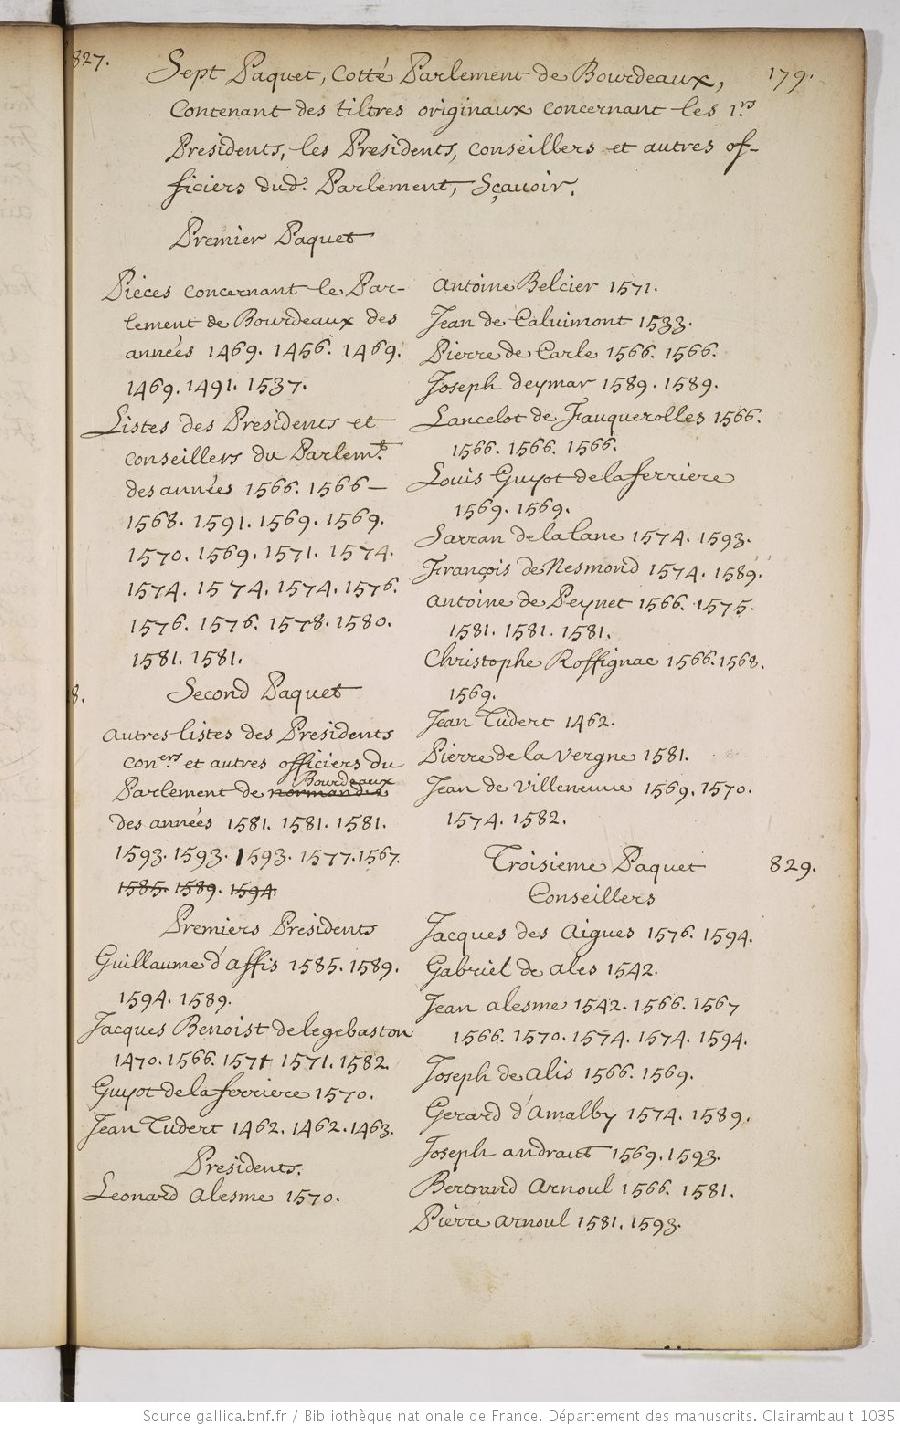 827.
179.
Sept Paquet, Cotté Parlement de Bourdeaux,
Contenant des tiltres originaux concernant les 1.rs
Presidents, les Presidents, conseillers et autres of-
ficiers dud. Parlement, Sçauoir.
Premier Paquet
Pieces concernant le Par-
lement de Bourdeaux des
années 1469. 1456. 1469.
1469. 1491. 1537.
Listes des Presidents et
conseillers du Parlem.t
des années 1566. 1566 –
1568. 1591. 1569. 1569.
1570. 1569. 1571. 1574.
1574. 1574. 1574. 1576.
1576. 1576. 1578. 1580.
1581. 1581.
8.
Second Paquet
autres listes des Presidents
con.ers et autres officiers du
Bourdeaux
Parlement de normandie
des années 1581. 1581. 1581.
1593. 1593. 1593. 1577. 1567
1585. 1589. 1594
Premiers Presidents
Guillaume d'affis 1585. 1589.
1594. 1589.
Jacques Benoist de legebaston
1470. 1566. 1571 1571. 1582
Guyot de la ferriere 1570.
Jean Tudert 1462. 1462. 1463.
Presidents.
Leonard alesme 1570.
antoine Belcier 1571.
Jean de Caluimont 1533.
Pierre de Carle 1566. 1566.
Joseph deymar 1589. 1589.
Lancelot de Fauquerolles 1566.
1566. 1566. 1566.
Louis Guyot de la ferriere
1569. 1569.
Sarran de la lane 1574. 1593.
François de Nesmond 1574. 1589.
antoine de Peynet 1566. 1575.
1581. 1581. 1581.
Christophe Roffignac 1566. 1568.
1569.
Jean Tudert 1462.
Pierre de la vergne 1581.
Jean de Villeneuue 1569. 1570.
1574. 1582.
Troisieme Paquet
829.
Conseillers
Jacques des aigues 1576. 1594.
Gabriel de ales 1542.
Jean alesme 1542. 1566. 1567
1566. 1570. 1574. 1574. 1594.
Joseph de alis 1566. 1569.
Gerard d'amalby 1574. 1589.
Joseph andraut 1569. 1593.
Bertrand arnoul 1566. 1581.
Pierre arnoul 1581. 1593.
Source gallica.bnf.fr / Bibliothèque nationale de France. Département des manuscrits. Clairambault 1035